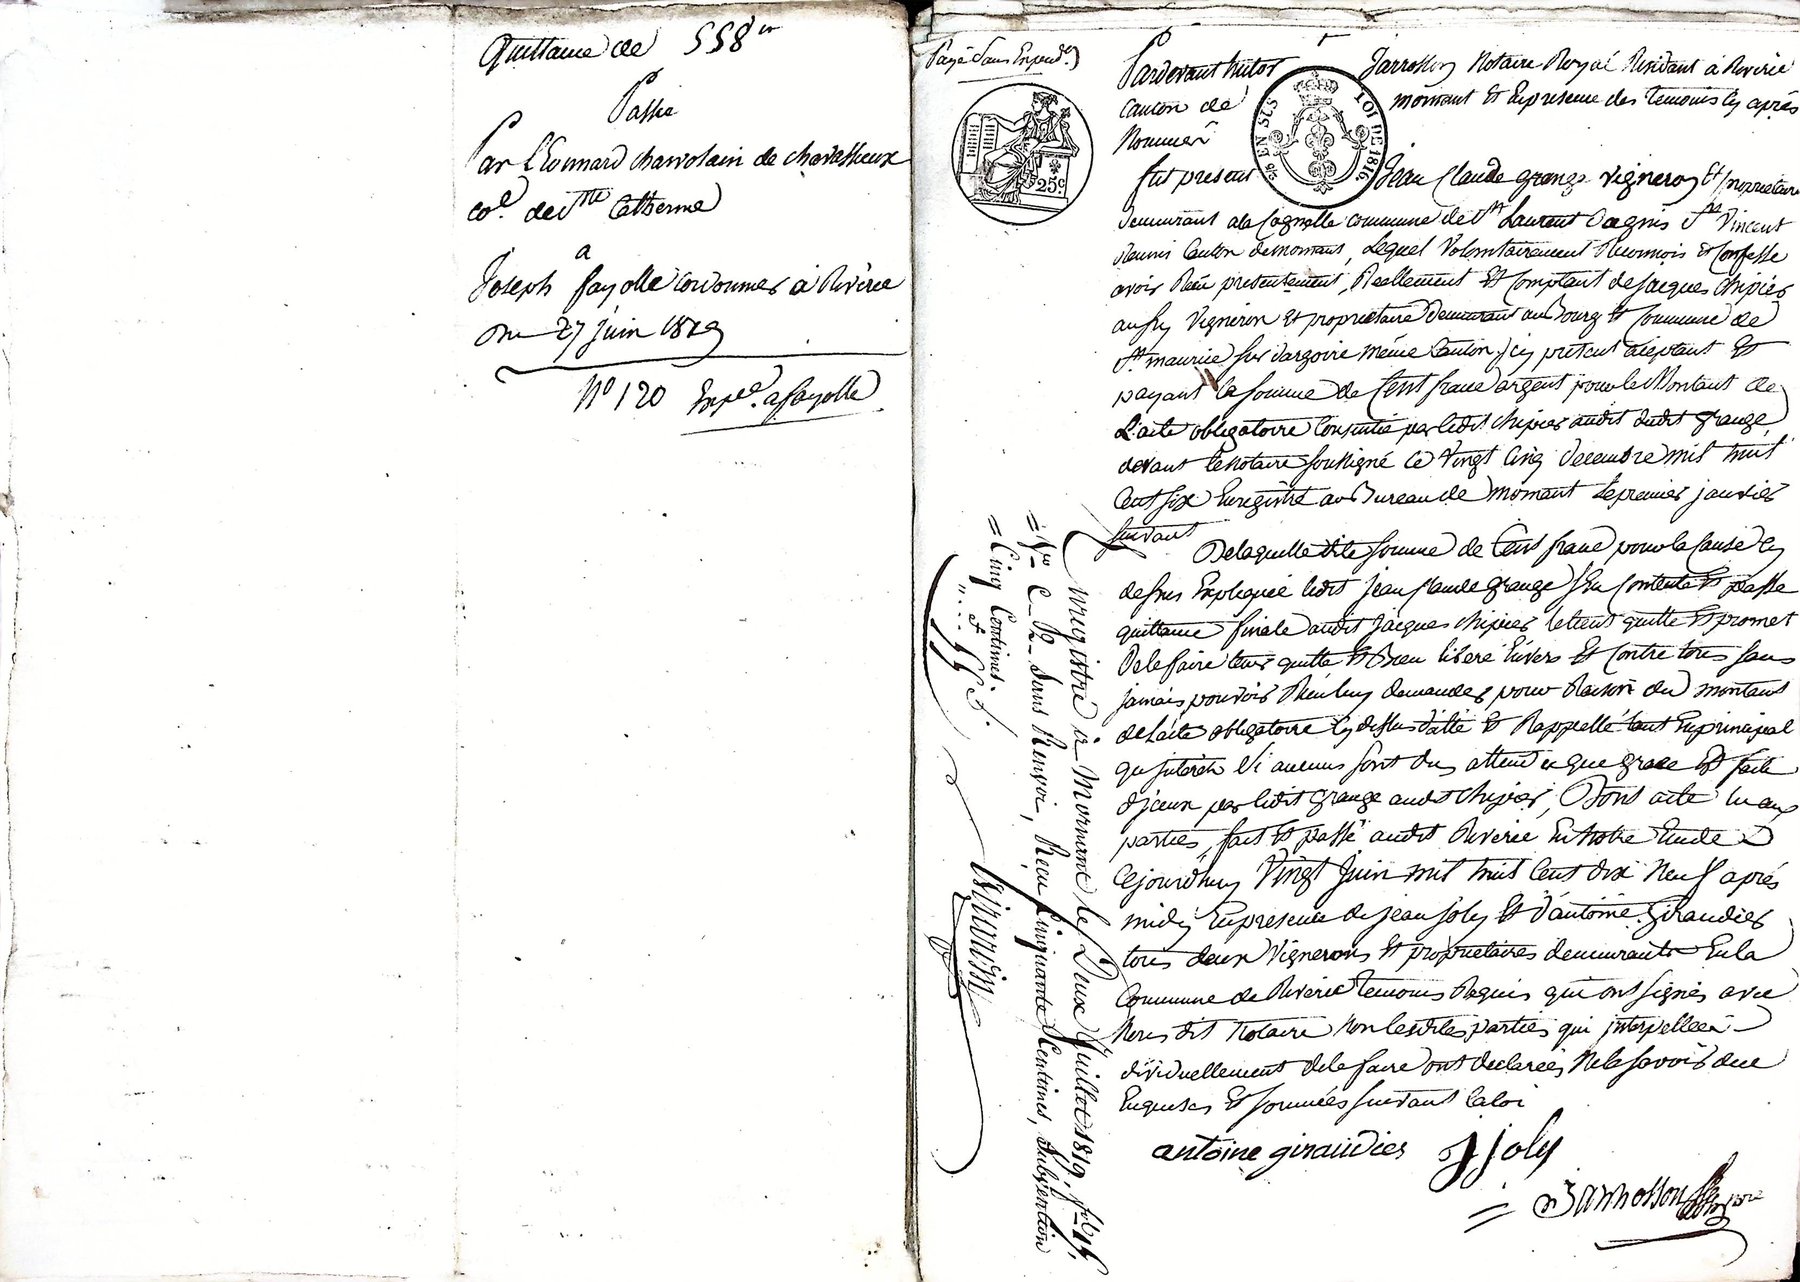 Quittance de 558 fr
Passée
Par Léonnard charvolain de chavassieux
coe. de Ste Catherine
a
Joseph fayolle cordonnier à Riverie
Du 27 juin 1819
No 120 Exped. a fayolle
Payé Sans Exped.
Pardevant Jarrosson Notaire Royal Residant a Riverie
Canton de mornant Et En presence des temoins cy après
Nommés
25c.
EN SUS
LOI DE 1816.
fut present Jean Claude grange vigneron Et proprietaire
demeurant a la commune de St Laurent Dagnis St Vincent
Reunis Canton de mornant, Lequel Volontairement Reconnois Et Confesse
avoir Reçu presentement, Reellement Et Comptant de Jacques chipier
aussy Vigneron Et proprietaire demeurant au Bourg Et Commune de
St maurice sur dargoire même Canton, icy present aceptant Et
payant la somme de Cent franc argent pour le Montant de
L'acte obligatoire Consentie par ledit chipier audit grange
devant le Notaire soussigné ce Vingt Cinq decembre mil huit
Cent six Enregistré au Bureau de mornant Le premier janvier
suivant
De laquelle dite somme de Cent franc pour la Cause cy
dessus Expliquée ledit jean claude grange s'En Contente Et passe
quittance finale audit jacques chipier le tient quitte Et promet
De le faire tenir quitte Et Bien libere Envers Et Contre tous sans
jamais pouvoir Rien luy demander pour Raison du montant
de l'acte obligatoire cy dessus datté Et Rappellé tant En principal
qu'interêts Si aucuns sont dus attendu que grace Est faite
d'jceux par ledit grange audit chipier, Dont acte lu aux
parties, fait Et passé audit Riverie En Notre Etude
Cejourdhuy Vingt Juin mil huit Cent dix Neuf après
midy En presence de jean joly Et d'antoine Giraudier
tous deux Vignerons Et proprietaires demeurants En la
Commune de Riverie temoins Requis qui ont signés avec
Nous dit Notaire Non lesdites parties qui jnterpellées jn-
dividuellement de le faire ont declarées Ne le savoir de ce
Enquises Et sommées suivant la loi
antoine giraudier j joly
Jarrosson
Enregistré à Mornant le Deux Juillet 1819, fo 45,
Vo C. 2 Sans Renvoi, Reçu Cinquante Centimes, Subvention
Cinq Centimes.